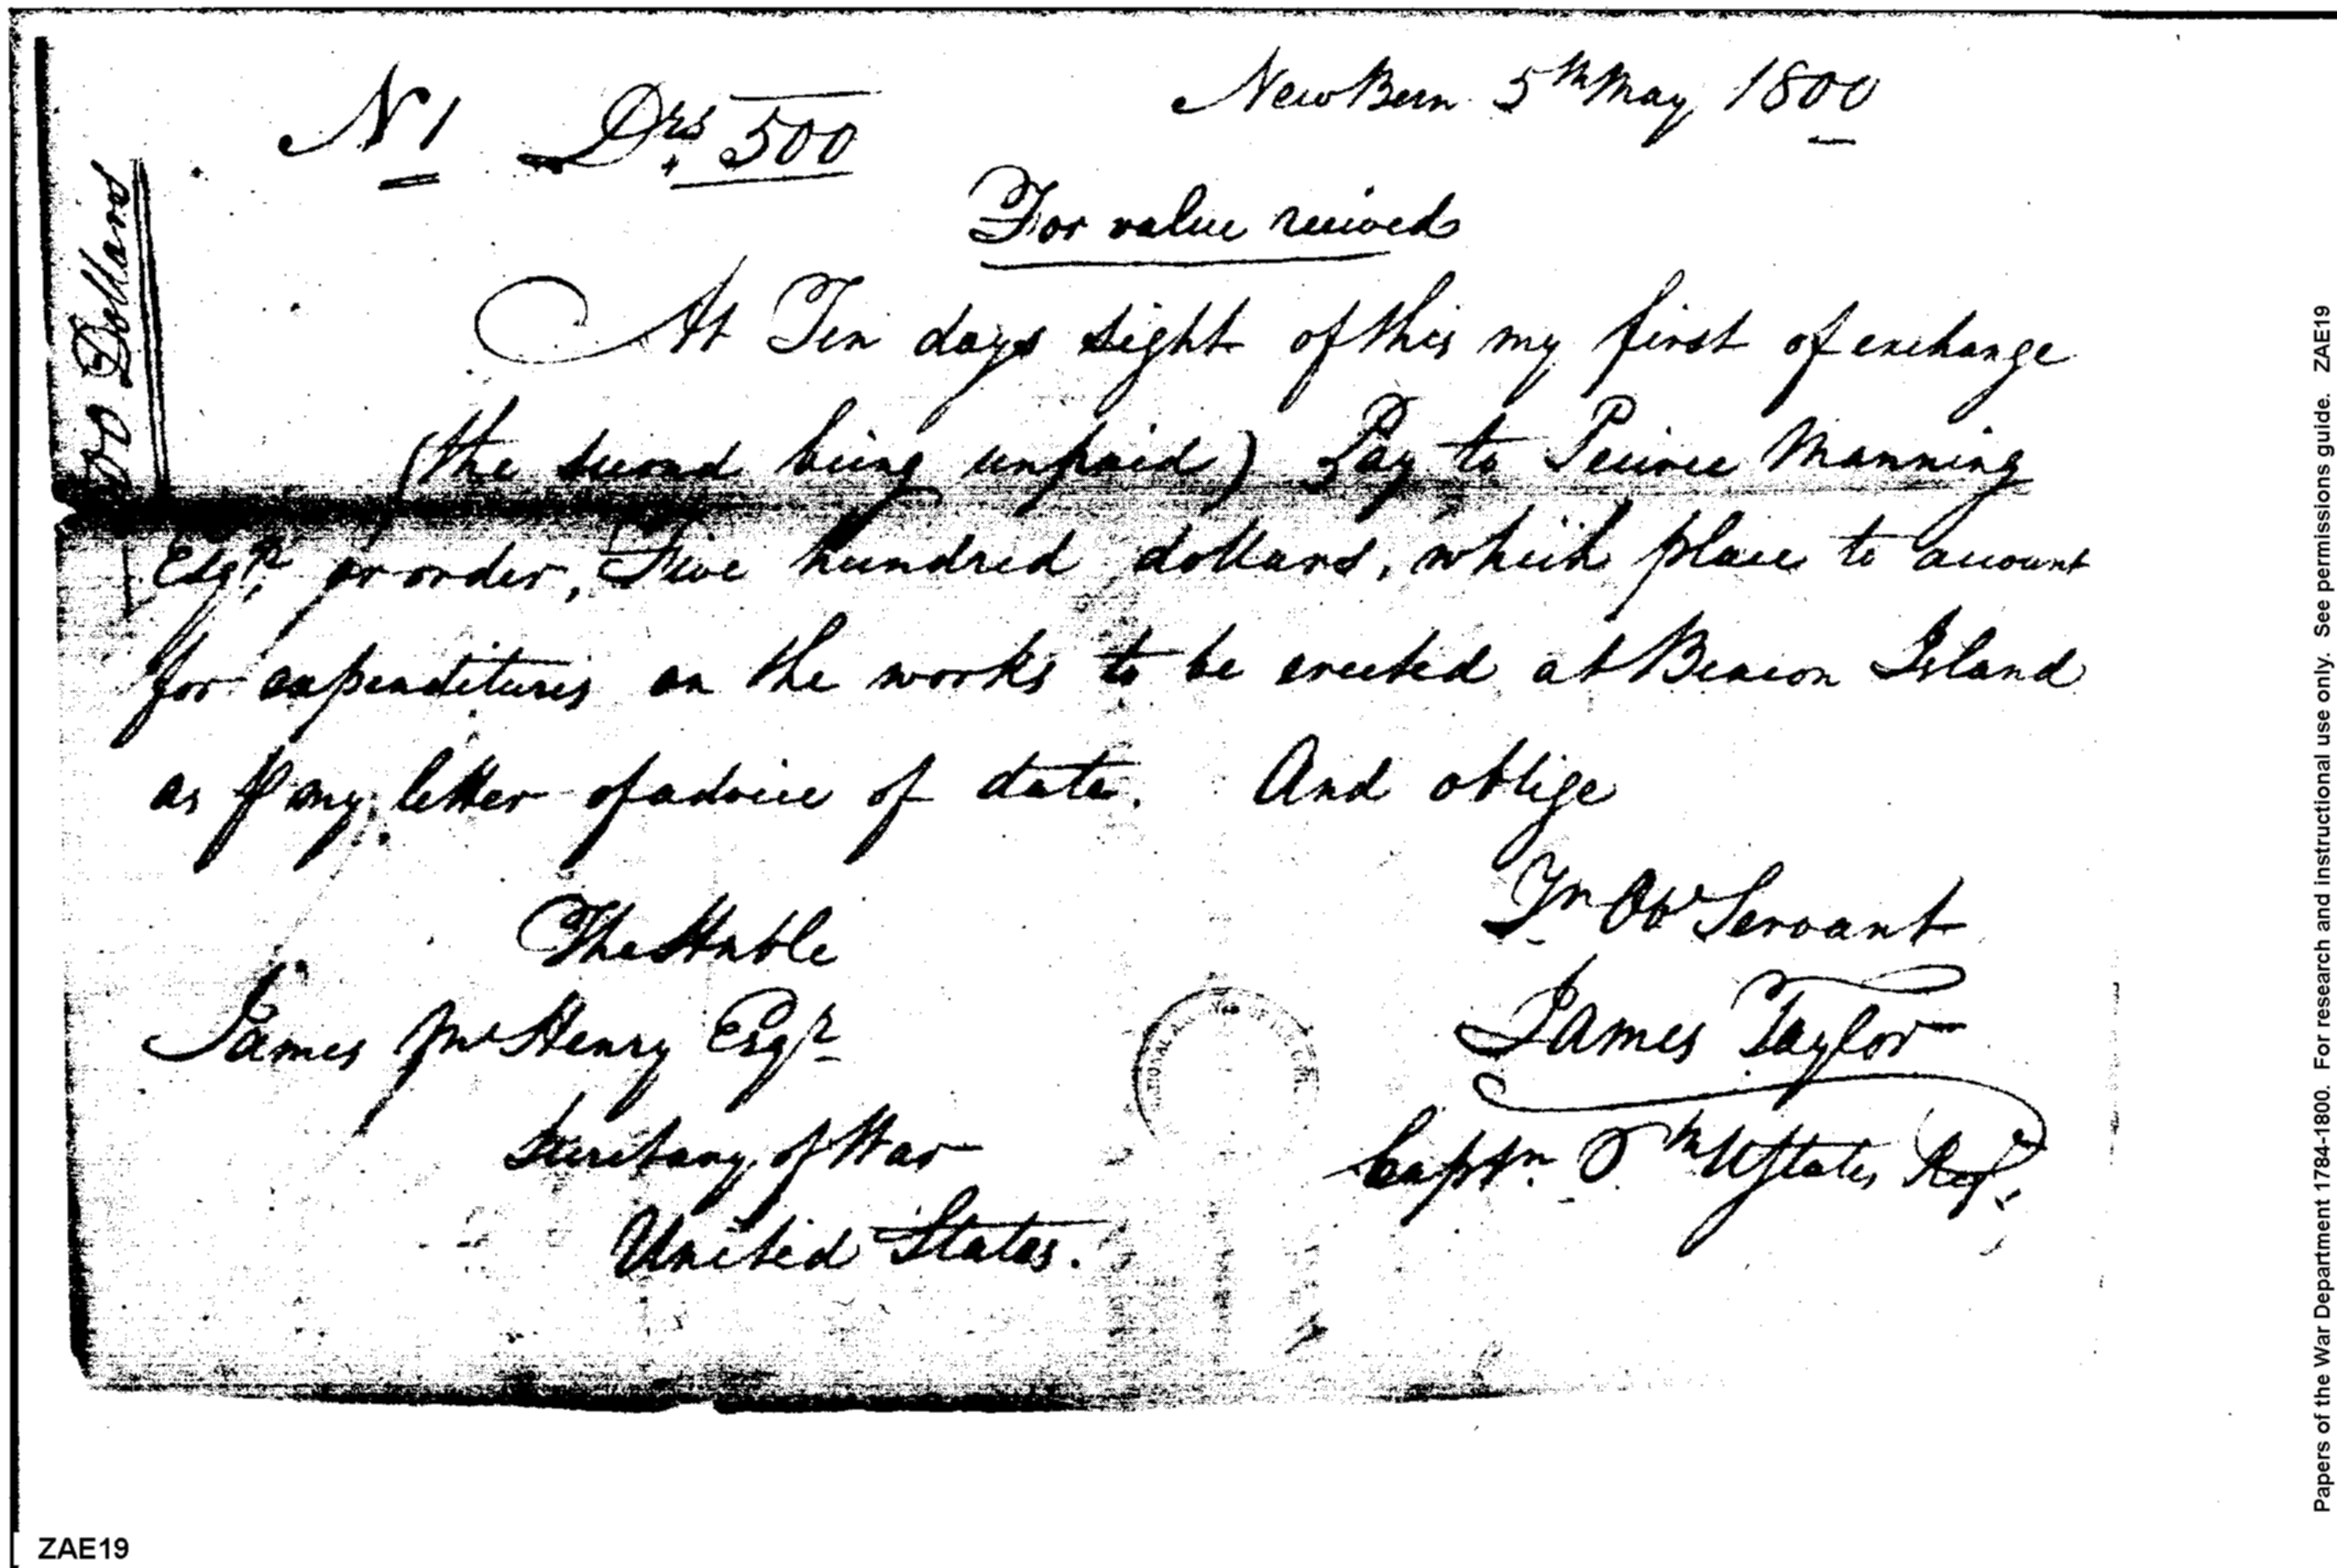 N 1 Drs. 500
NewBern 5th May 1800
For value received
At Ten days sight of this my first of exchange
(the second being unpaid) Pay to Peirce Manning
Esqr. or order, Five hundred dollars, which place to account
for expenditures on the works to be erected at Beacon Island
as my letter of advice of date. And oblige
Yr Ob Servant
The Honble
James Taylor
James McHenry Esqr
Captn. th U States Regt.
Secretary of War
United States.
00 Dollars
Papers of the War Department 1784-1800. For research and instructional use only. See permissions guide. ZAE19
ZAE19